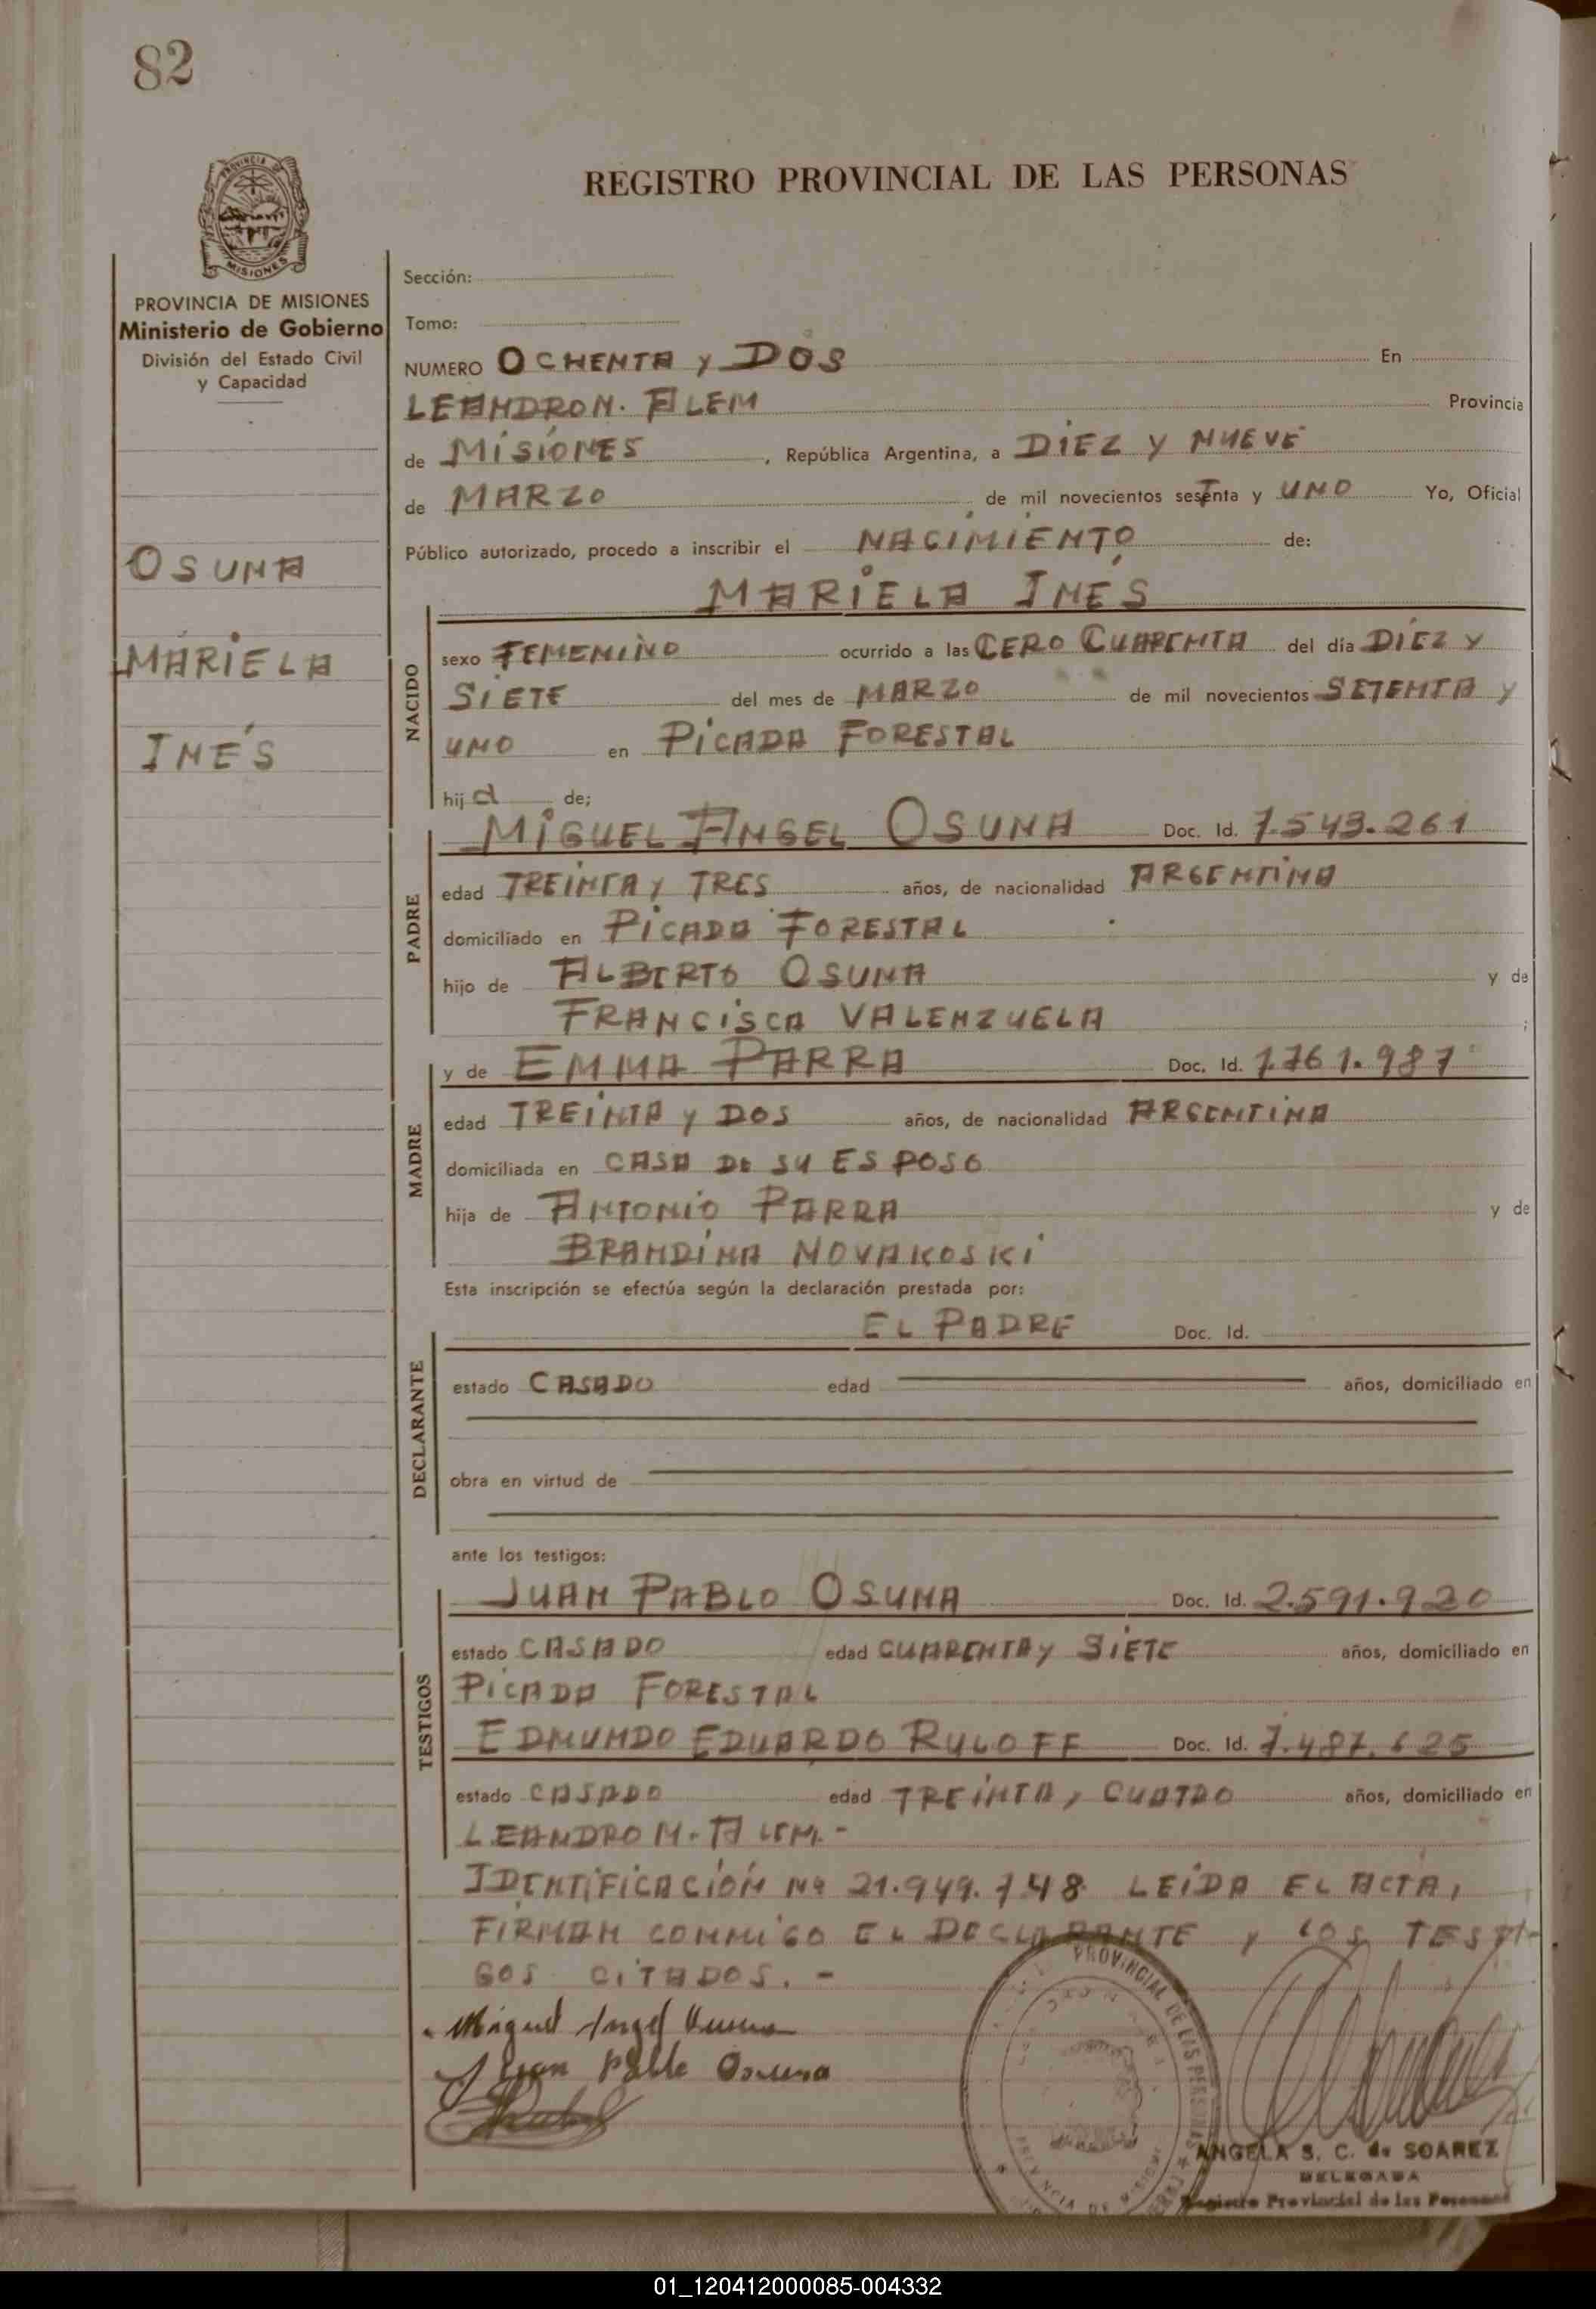 82
REGISTRO PROVINCIAL DE LAS PERSONAS
PROVINCIA DE
MISIONES
PROVINCIA DE MISIONES
Ministerio de Gobierno
División del Estado Civil
y Capacidad
OSUNA
MARIELA
INÉS
Sección:
Tomo:
NUMERO OCHENTA y DOS En
LEANDRO N. ALEM Provincia
de MISIONES, República Argentina, a DIEZ Y NUEVE
de MARZO de mil novecientos setenta y UNO Yo, Oficial
Público autorizado, procedo a inscribir el NACIMIENTO de:
MARIELA INÉS
NACIDO
sexo FEMENINO ocurrido a las CERO CUARENTA del día DIEZ Y
SIETE del mes de MARZO de mil novecientos SETENTA y
UNO en PICADA FORESTAL
hija de;
PADRE
MIGUEL ANGEL OSUNA Doc. Id. 7.543.261
edad TREINTA y TRES años, de nacionalidad ARGENTINA
domiciliado en PICADA FORESTAL
hijo de ALBERTO OSUNA y de
FRANCISCA VALENZUELA ;
MADRE
y de EMMA PARRA Doc. Id. 1.761.987
edad TREINTA y DOS años, de nacionalidad ARGENTINA
domiciliada en CASA DE SU ESPOSO
hija de ANTONIO PARRA y de
BRANDINA NOVAKOSKI
Esta inscripción se efectúa según la declaración prestada por:
DECLARANTE
EL PADRE Doc. Id.
estado CASADO edad años, domiciliado en
obra en virtud de
ante los testigos:
TESTIGOS
JUAN PABLO OSUNA Doc. Id. 2.591.920
estado CASADO edad CUARENTA y SIETE años, domiciliado en
PICADA FORESTAL
EDMUNDO EDUARDO RULOFF Doc. Id. 7.487.625
estado CASADO edad TREINTA y CUATRO años, domiciliado en
LEANDRO N. ALEM.-
IDENTIFICACIÓN Nº 21.949.748 LEIDA EL ACTA,
FIRMAN CONMIGO EL DECLARANTE y LOS TESTI-
GOS CITADOS. -
Miguel Angel Osuna
Juan Pablo Osuna
PROVINCIAL DE LAS PERSONAS
PROVINCIA DE MISIONES
ANGELA S. C. de SOAREZ
DELEGADA
Registro Provincial de las Personas
01_120412000085-004332